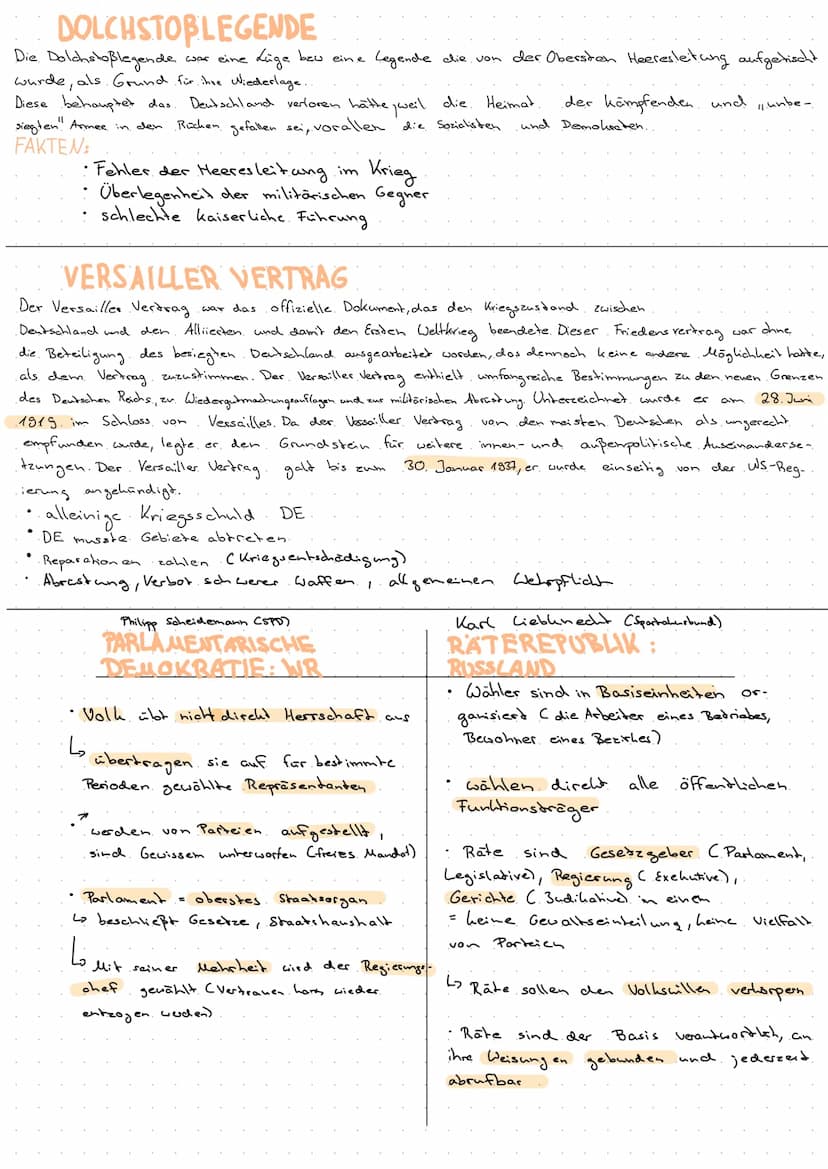 DOLCHSTOßLEGENDE
Die Dolchstoßlegende war eine Lüge bzw eine Legende die von der Obersten Heeresleitung aufgetischt
wurde, als Grund für ihre Niederlage.
Diese behauptet das Deutschland verloren hätte, weil die Heimat der kämpfenden und „unbe-
siegten" Armee in den Rücken gefallen sei, vorallen die Sozialisten und Demokraten.
FAKTEN:
· Fehler der Heeresleitung im Krieg
· Überlegenheit der militärischen Gegner
· schlechte kaiserliche Führung
VERSAILLER VERTRAG
Der Versailler Vertrag war das offizielle Dokument, das den Kriegszustand zwischen
Deutschland und den Alliierten und damit den Ersten Weltkrieg beendete. Dieser Friedensvertrag war ohne
die Beteiligung des besiegten Deutschland ausgearbeitet worden, das dennoch keine andere Möglichkeit hatte,
als dem Vertrag zuzustimmen. Der Versailler Vertrag enthielt umfangreiche Bestimmungen zu den neuen Grenzen
des Deutschen Reichs, zu Wiedergutmachungsauflagen und zur militärischen Abrüstung. Unterzeichnet wurde er am 28. Juni
1919 im Schloss von Versailles. Da der Versailler Vertrag von den meisten Deutschen als ungerecht
empfunden wurde, legte er den Grundstein für weitere innen- und außenpolitische Auseinanderse-
tzungen. Der Versailler Vertrag galt bis zum 30. Januar 1937, er wurde einseitig von der NS-Reg-
ierung angekündigt.
· alleinige Kriegsschuld DE
· DE musste Gebiete abtreten
· Reparationen zahlen (Kriegsentschädigung)
· Abrüstung, Verbot schwerer Waffen, allgemeinen Wehrpflicht
Philipp Scheidemann (SPD)
PARLAMENTARISCHE
DEMOKRATIE: WR
· Volk übt nicht direkt Herrschaft aus
↳ übertragen sie auf für bestimmte
Perioden gewählte Repräsentanten
↗ werden von Parteien aufgestellt,
sind Gewissem unterworfen (freies Mandat)
· Parlament = oberstes Staatsorgan
↳ beschließt Gesetze, Staatshaushalt
↳ Mit seiner Mehrheit wird der Regierungs-
chef gewählt (Vertrauen kann wieder
entzogen werden)
Karl Liebknecht (Spartakusbund)
RÄTEREPUBLIK:
RUSSLAND
· Wähler sind in Basiseinheiten or-
ganisiert (die Arbeiter eines Betriebes,
Bewohner eines Bezirkes)
· wählen direkt alle öffentlichen
Funktionsträger
· Räte sind Gesetzgeber (Parlament,
Legislative), Regierung (Exekutive),
Gerichte (Judikative) in einem
= keine Gewaltseinteilung, keine Vielfalt
von Parteien
↳ Räte sollen den Volkswillen verkörpern
· Räte sind der Basis verantwortlich, an
ihre Weisungen gebunden und jederzeit
abrufbar